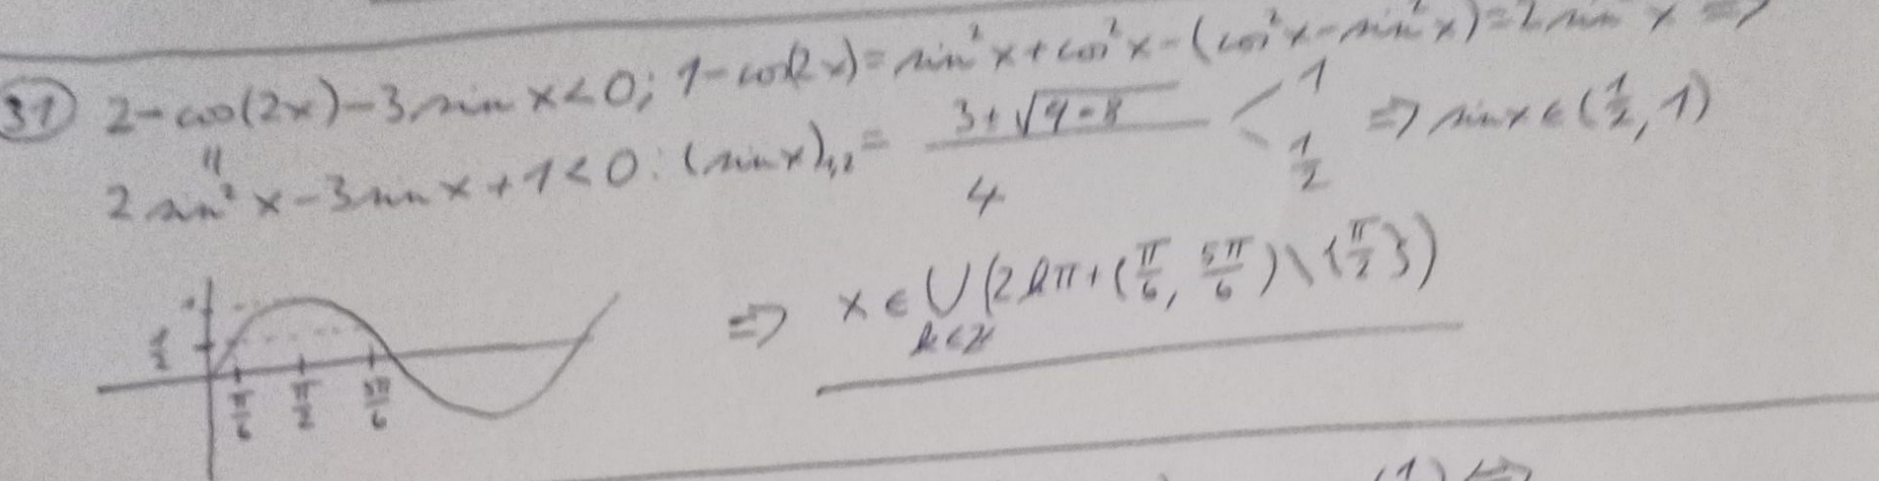 31) 2-cos(2x)-3sin x<0; 1-cos(2x)=sin²x+cos²x-(cos²x-sin²x)=2sin²x =>
"
2sin²x-3sinx+1<0: (sinx)₁,₂= (3±√(9-8))/4 < 1, 1/2 => sinx∈(1/2, 1)
=> x∈⋃_{k∈Z}(2kπ+(π/6, 5π/6)\{π/2})
1/2
π/6 π/2 5π/6
(1) <=>